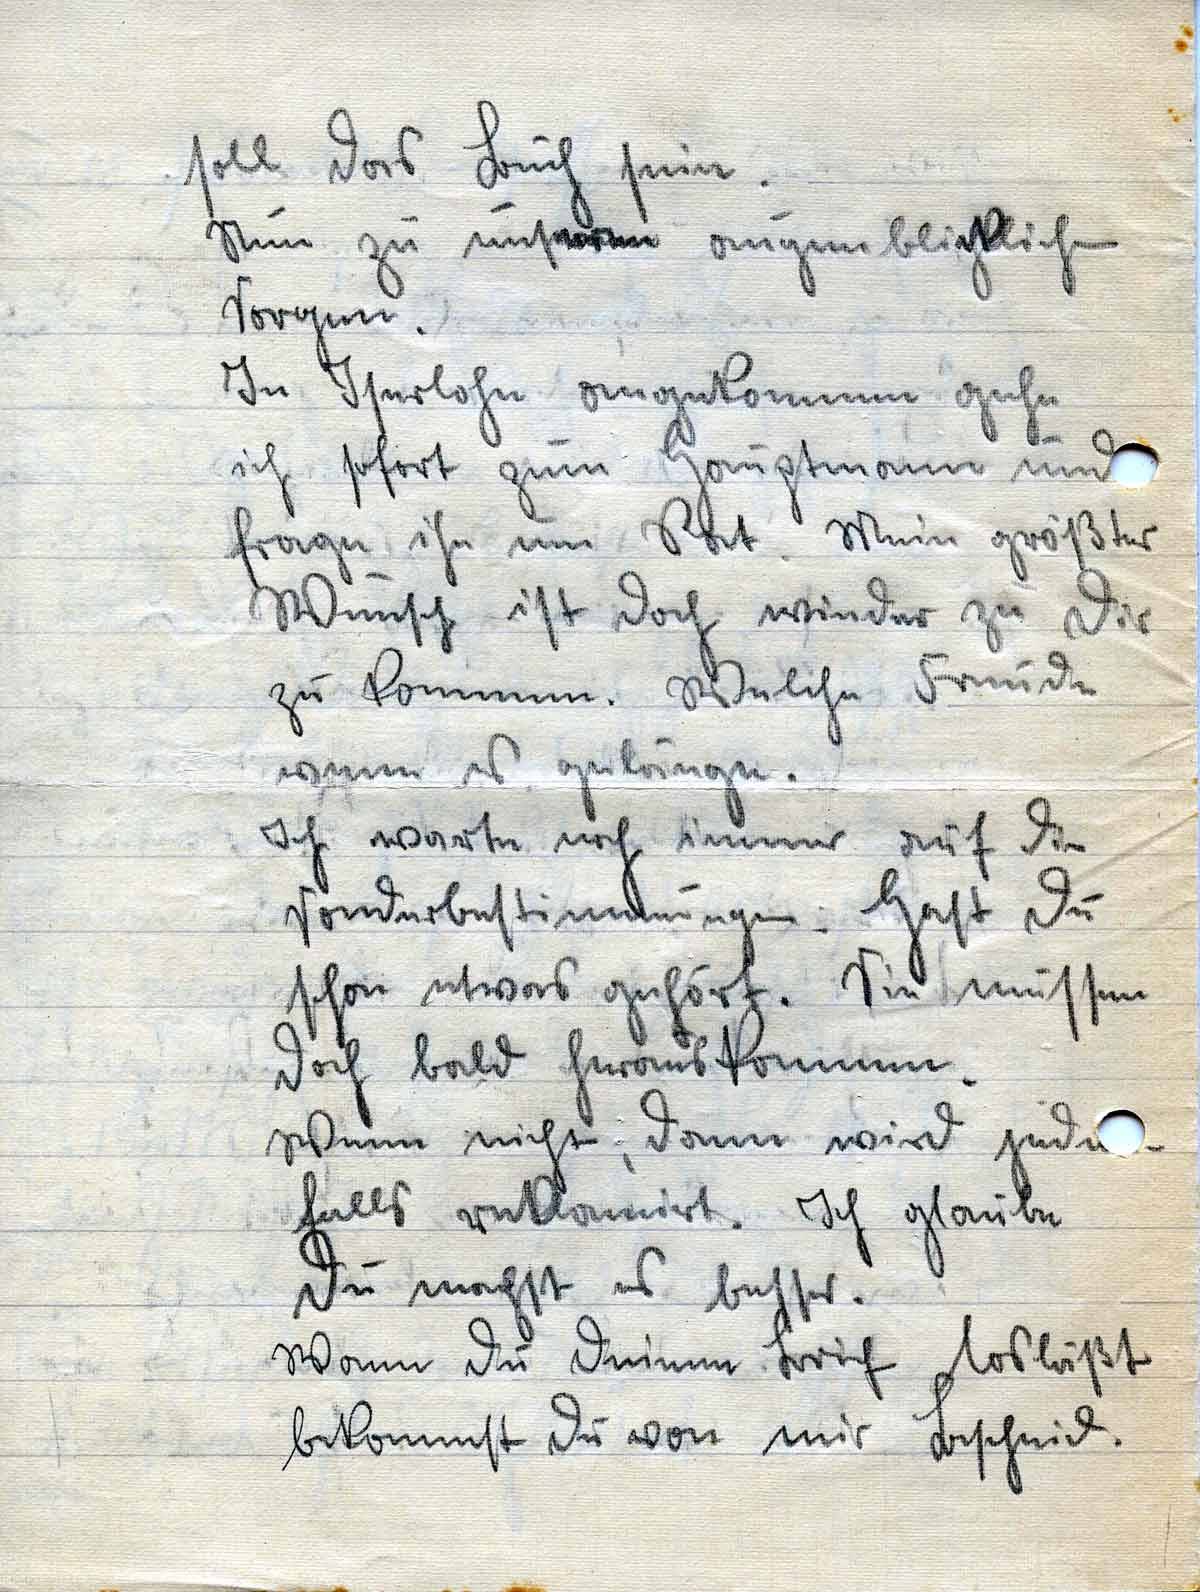 soll das Buch sein.
Nun zu unseren augenblicklichen
Sorgen.
In Iserlohn angekommen gehe
ich sofort zum Hauptmann und
frage ihn um Rat. Mein größter
Wunsch ist doch wieder zu Dir
zu kommen. Welche Freude
wenn es gelänge.
Ich warte noch immer auf die
Sonderbestimmungen. Hast Du
schon etwas gehört. Sie müssen
doch bald herauskommen.
Wenn nicht, dann wird jeden-
falls reklamirt. Ich glaube
Du machst es besser.
Wann Du Deinen Brief losläßt
bekommst Du von mir Bescheid.